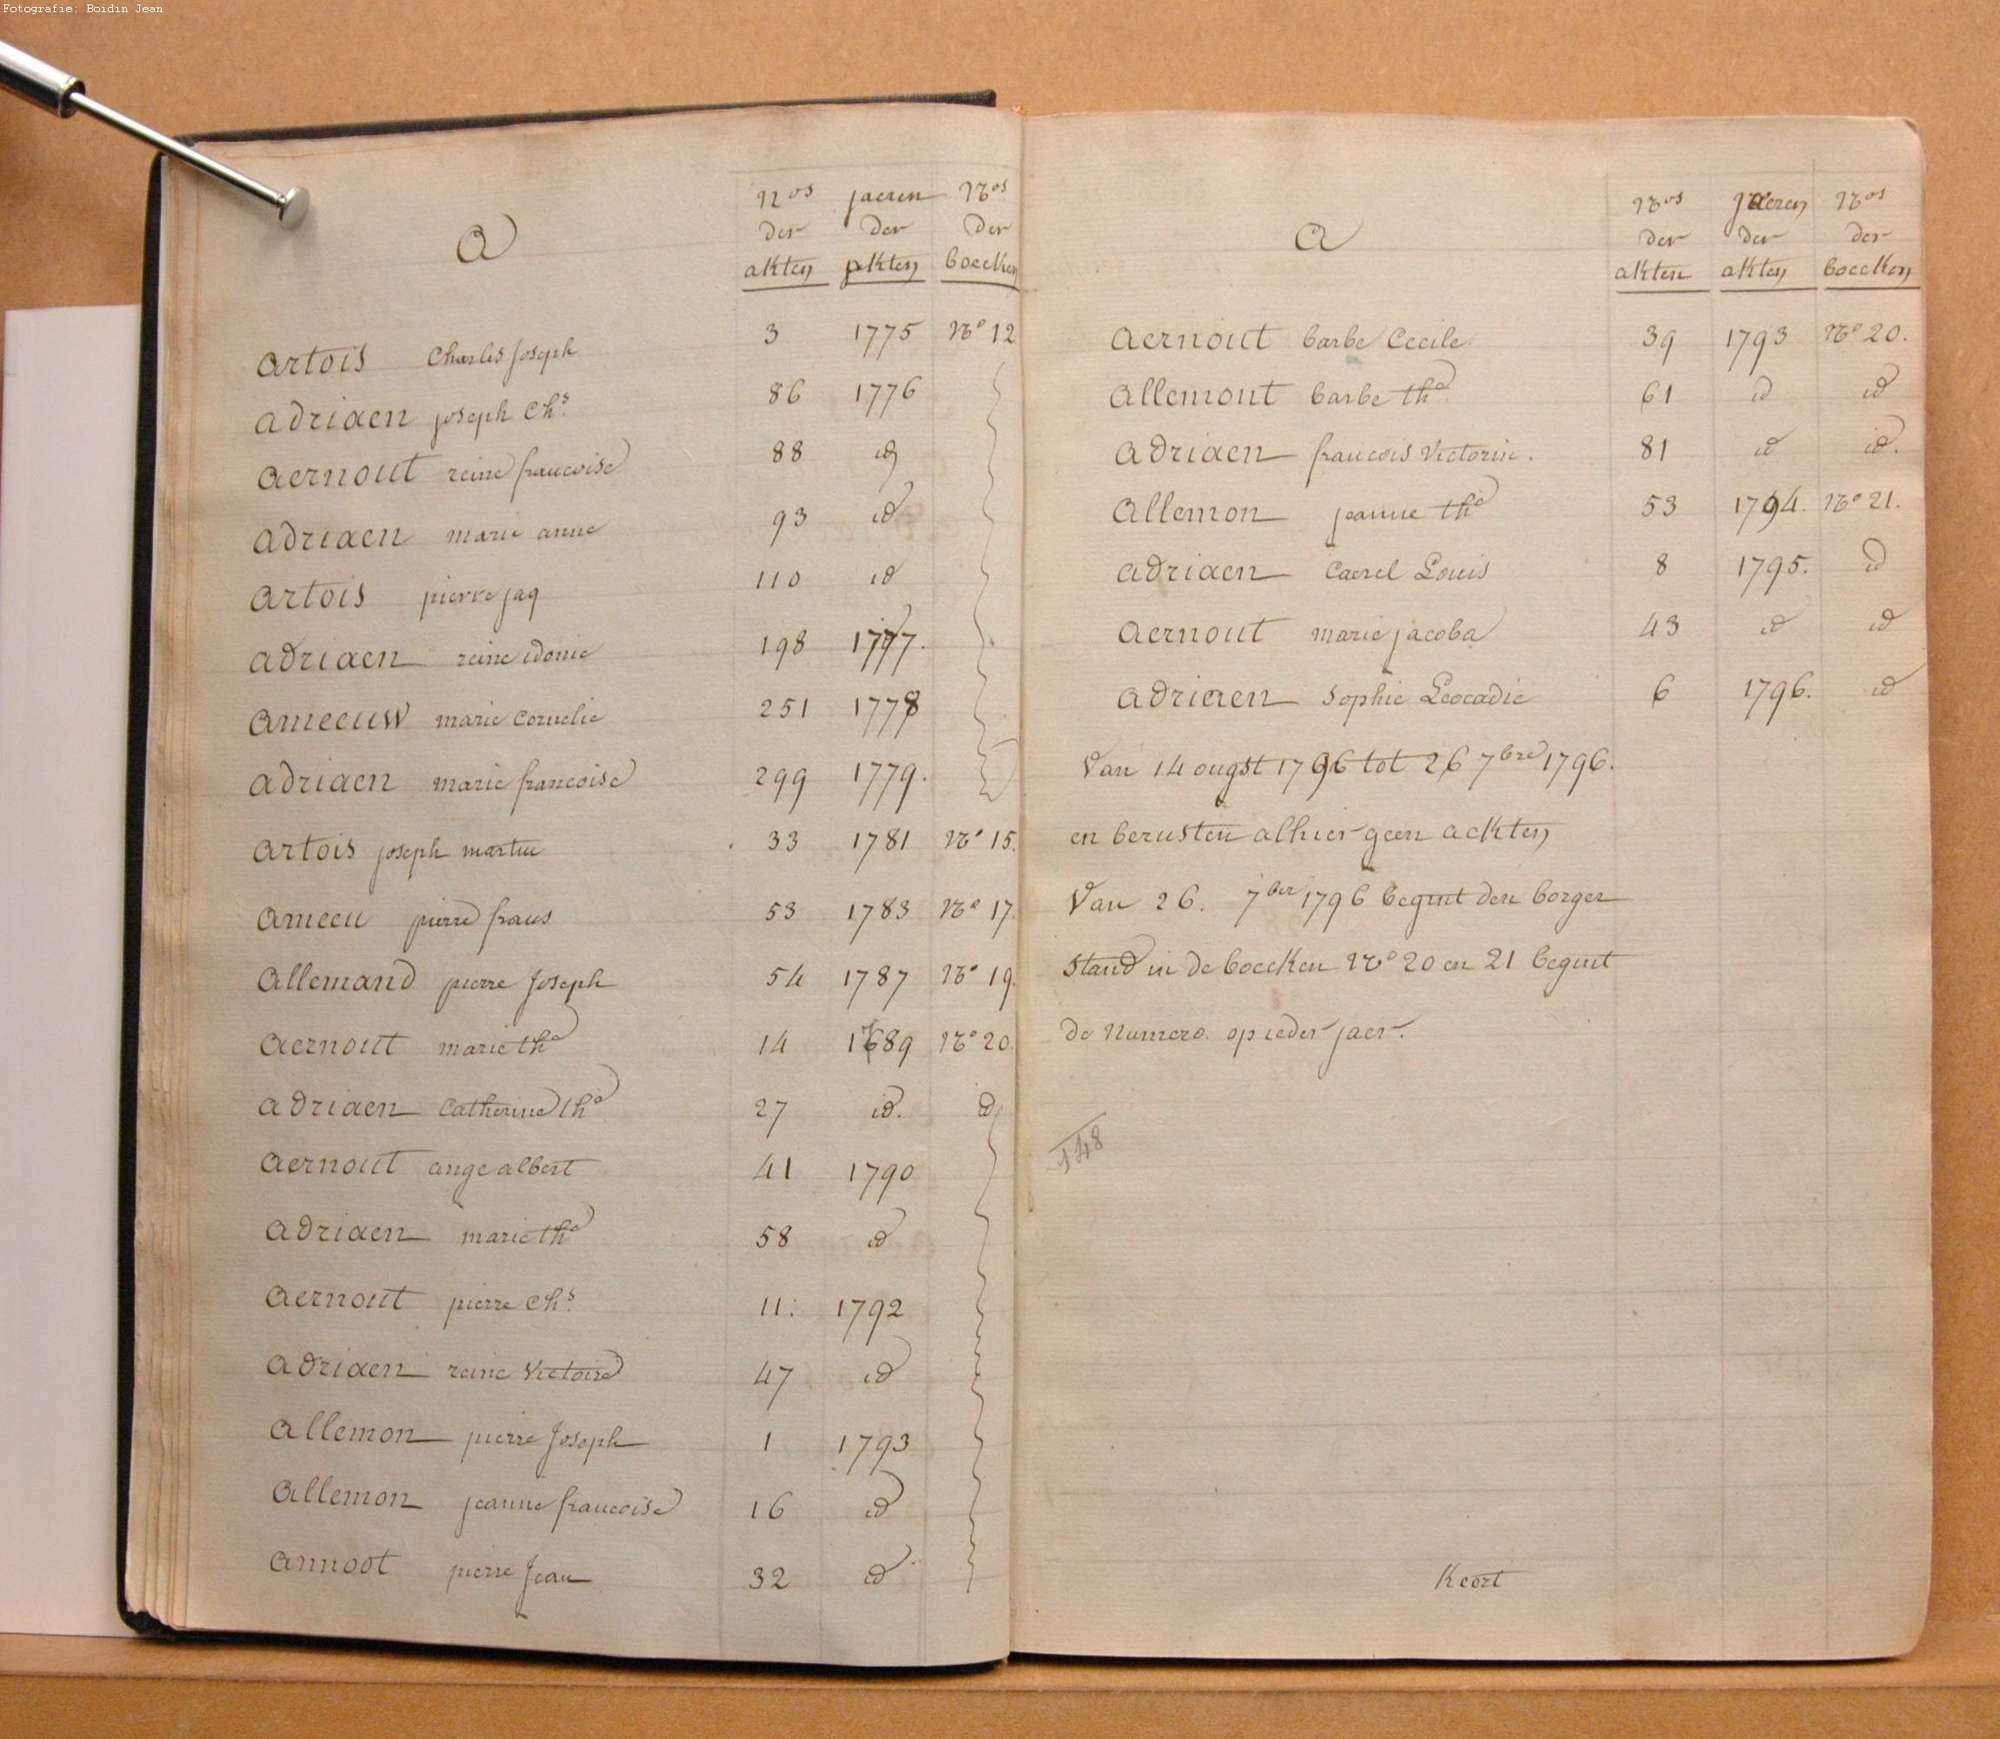 Fotografie: Boidin Jean
a
Nos jaeren Nos
der der der
akten akten boecken
artois Charles joseph 3 1775 No 12
adriaen joseph Chs. 86 1776
aernout reine francoise 88 id
adriaen marie anne 93 id
artois pierre jaq 110 id
adriaen reine idonie 198 1777.
ameeuw marie Cornelie 251 1778
adriaen marie francoise 299 1779.
artois joseph martin 33 1781 No 15.
ameeu pierre frans 53 1783 No 17.
allemand pierre Joseph 54 1787 No 19.
aernout marie the 14 1789 No 20.
adriaen Catherine the 27 id. id
aernout ange albert 41 1790
adriaen marie the 58 id
aernout pierre Chs. 11. 1792
adriaen reine Victoire 47 id
allemon pierre Joseph 1 1793
allemon jeanne francoise 16 id
annoot pierre Jean 32 id
a
Nos Jaeren Nos
der der der
akten akten boecken
aernout barbe Cecile 39 1793 No 20.
allemont barbe the 61 id id
adriaen francois Victorin. 81 id id.
allemon jeanne the 53 1794. No 21.
adriaen Caerel Louis 8 1795. id
aernout marie jacoba 43 id id
adriaen Sophie Leocadie 6 1796. id
Van 14 ougst 1796 tot 26 7bre 1796.
en berusten alhier geen ackten
Van 26. 7ber 1796 begint den borger
stand in de boecken No 20 en 21 begint
de Numero op ieder jaer.
148
Keert